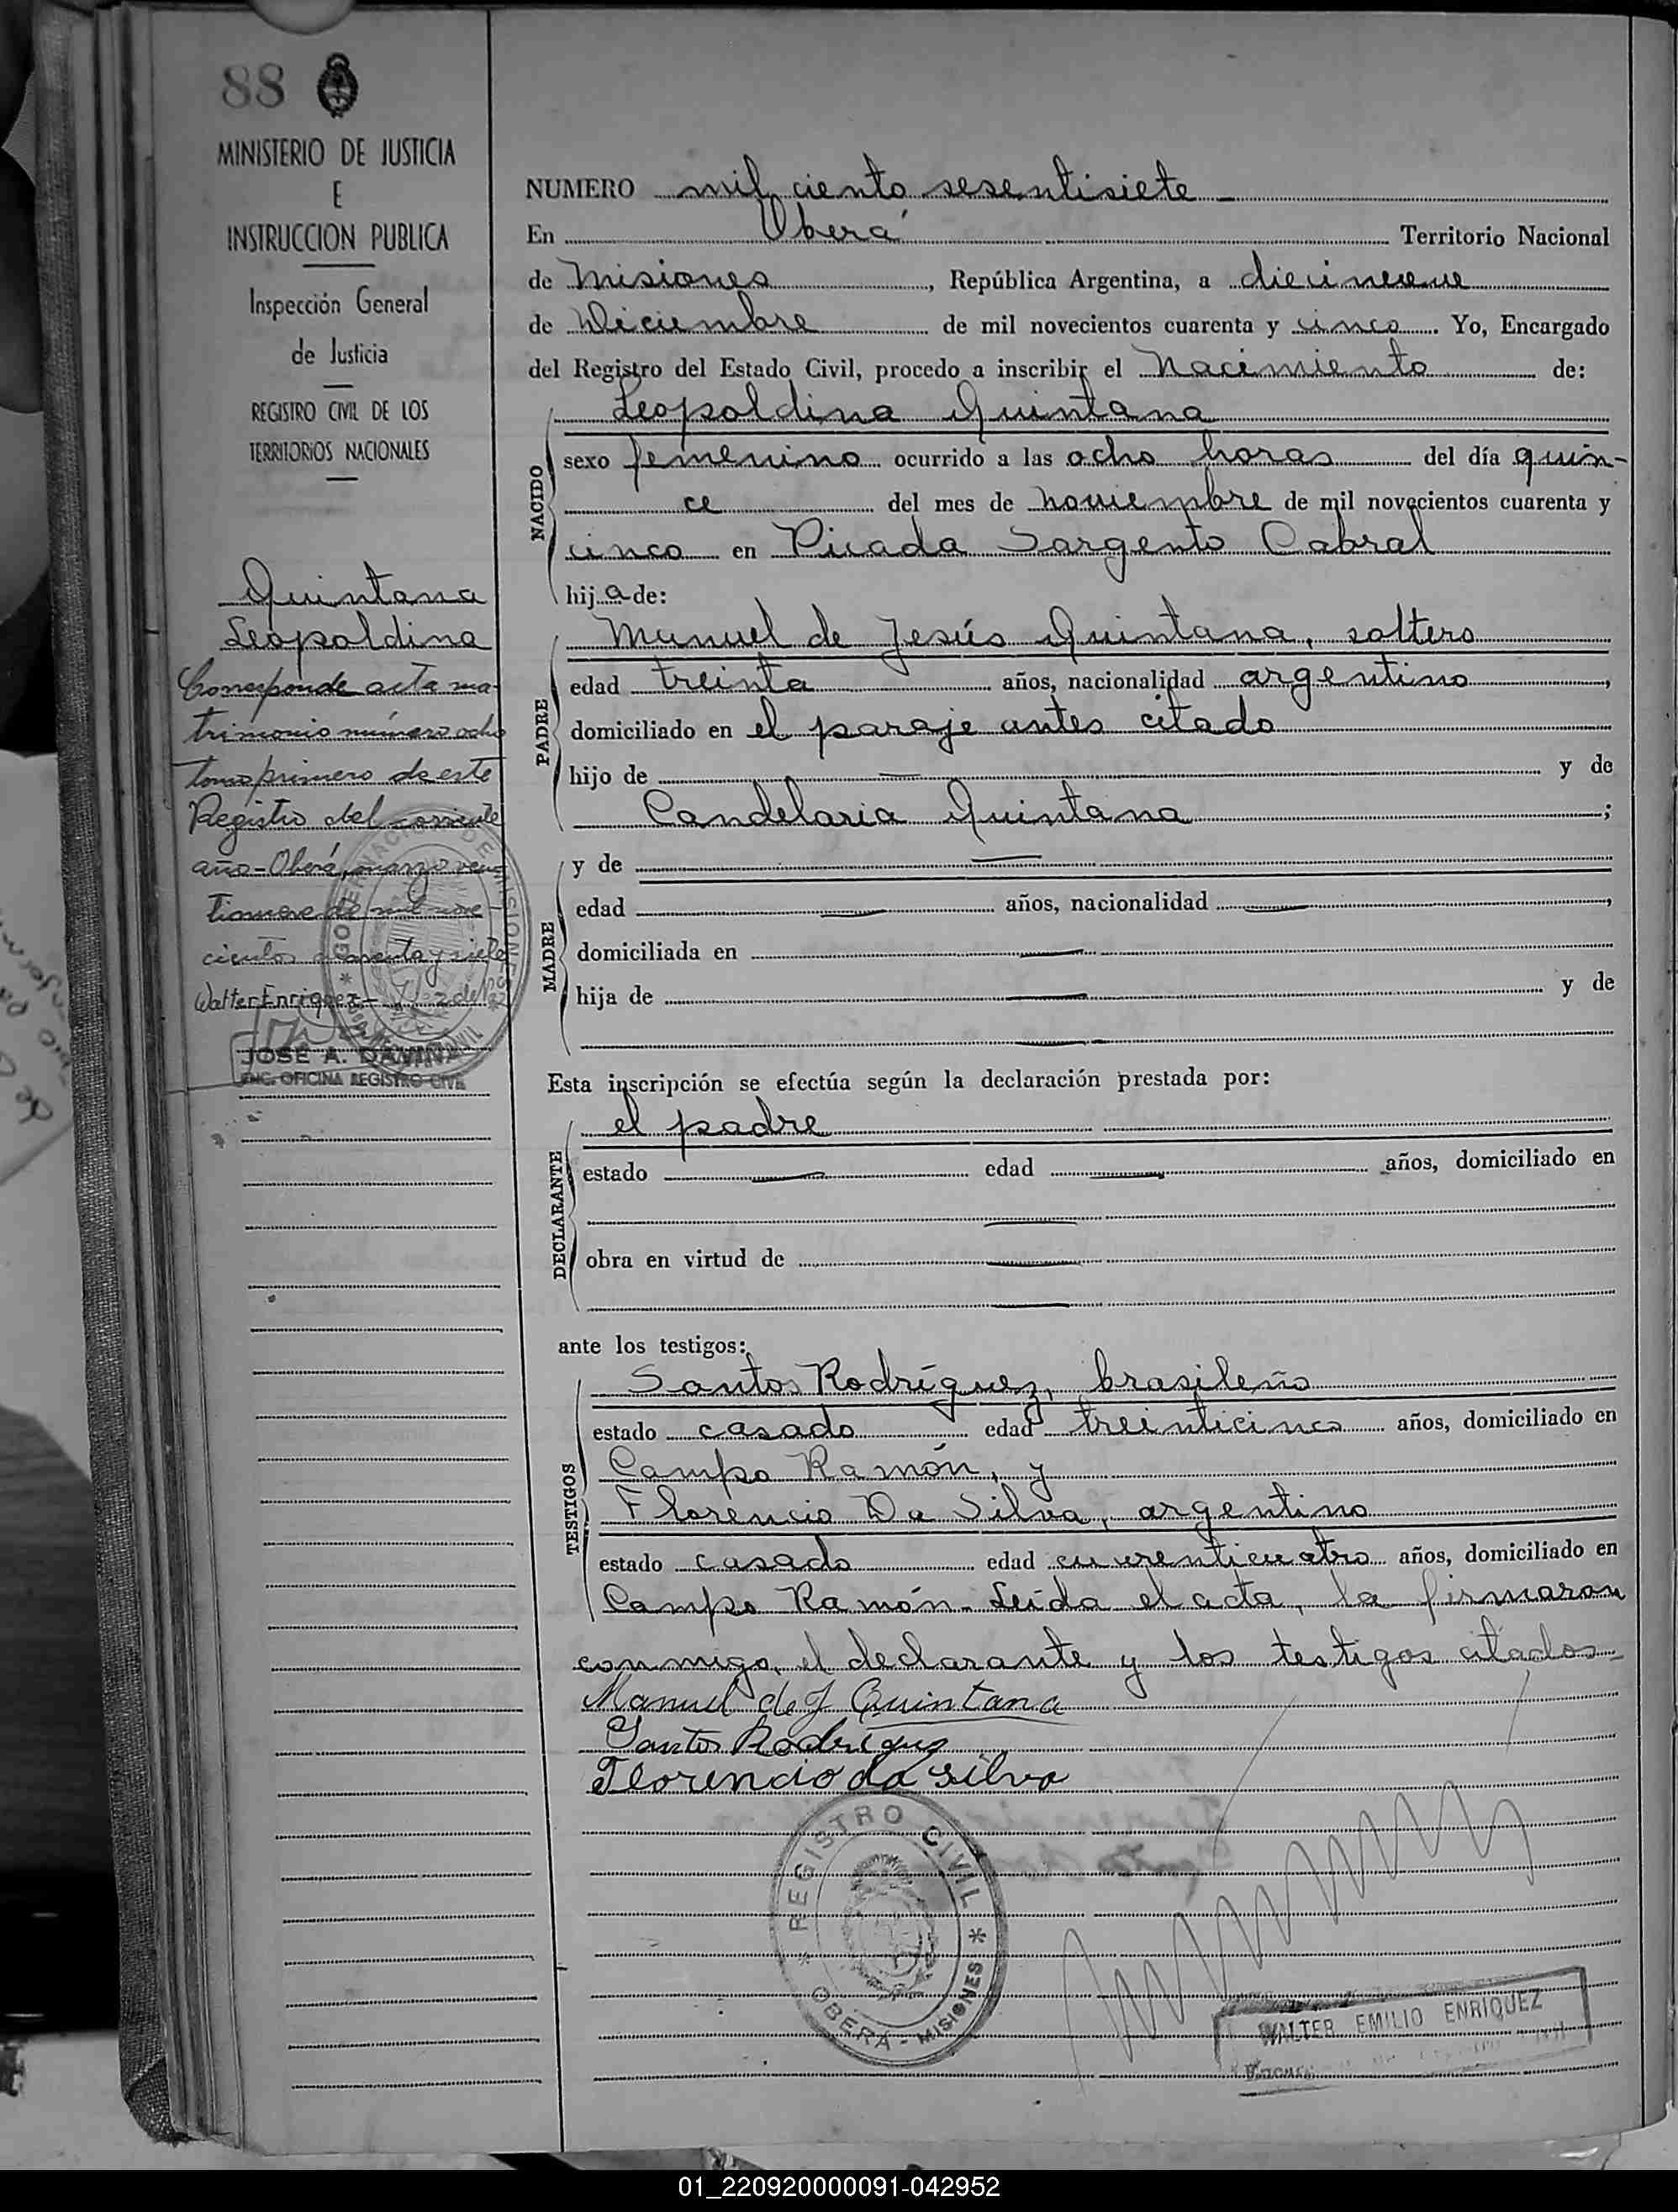 88
MINISTERIO DE JUSTICIA
E
INSTRUCCION PUBLICA
Inspección General
de Justicia
REGISTRO CIVIL DE LOS
TERRITORIOS NACIONALES
Quintana
Leopoldina
Corresponde acta ma-
trimonio número ocho
tomo primero de este
Registro del corriente
año - Oberá, marzo vein
tinueve de mil nove-
cientos cuarenta y siete
Walter Enriquez -
JOSE A. DAVIÑA
ENC. OFICINA REGISTRO CIVIL
NUMERO mil ciento sesentisiete
En Oberá Territorio Nacional
de Misiones, República Argentina, a diecinueve
de Diciembre de mil novecientos cuarenta y cinco. Yo, Encargado
del Registro del Estado Civil, procedo a inscribir el Nacimiento de:
NACIDO
Leopoldina Quintana
sexo femenino ocurrido a las ocho horas del día quin-
ce del mes de noviembre de mil novecientos cuarenta y
cinco en Picada Sargento Cabral
hija de:
PADRE
Manuel de Jesús Quintana, soltero
edad treinta años, nacionalidad argentino,
domiciliado en el paraje antes citado
hijo de — y de
Candelaria Quintana;
MADRE
y de —
edad — años, nacionalidad —,
domiciliada en —
hija de — y de
—
Esta inscripción se efectúa según la declaración prestada por:
DECLARANTE
el padre
estado — edad — años, domiciliado en
—
obra en virtud de —
—
ante los testigos:
TESTIGOS
Santos Rodríguez, brasileño
estado casado edad treinticinco años, domiciliado en
Campo Ramón, y
Florencio Da Silva, argentino
estado casado edad cuarenticuatro años, domiciliado en
Campo Ramón - Leída el acta, la firmaron
conmigo, el declarante y los testigos citados -
Manuel de J Quintana
Santos Rodriguez
Florencio da silva
* REGISTRO CIVIL *
OBERÁ - MISIONES
WALTER EMILIO ENRIQUEZ
01_220920000091-042952